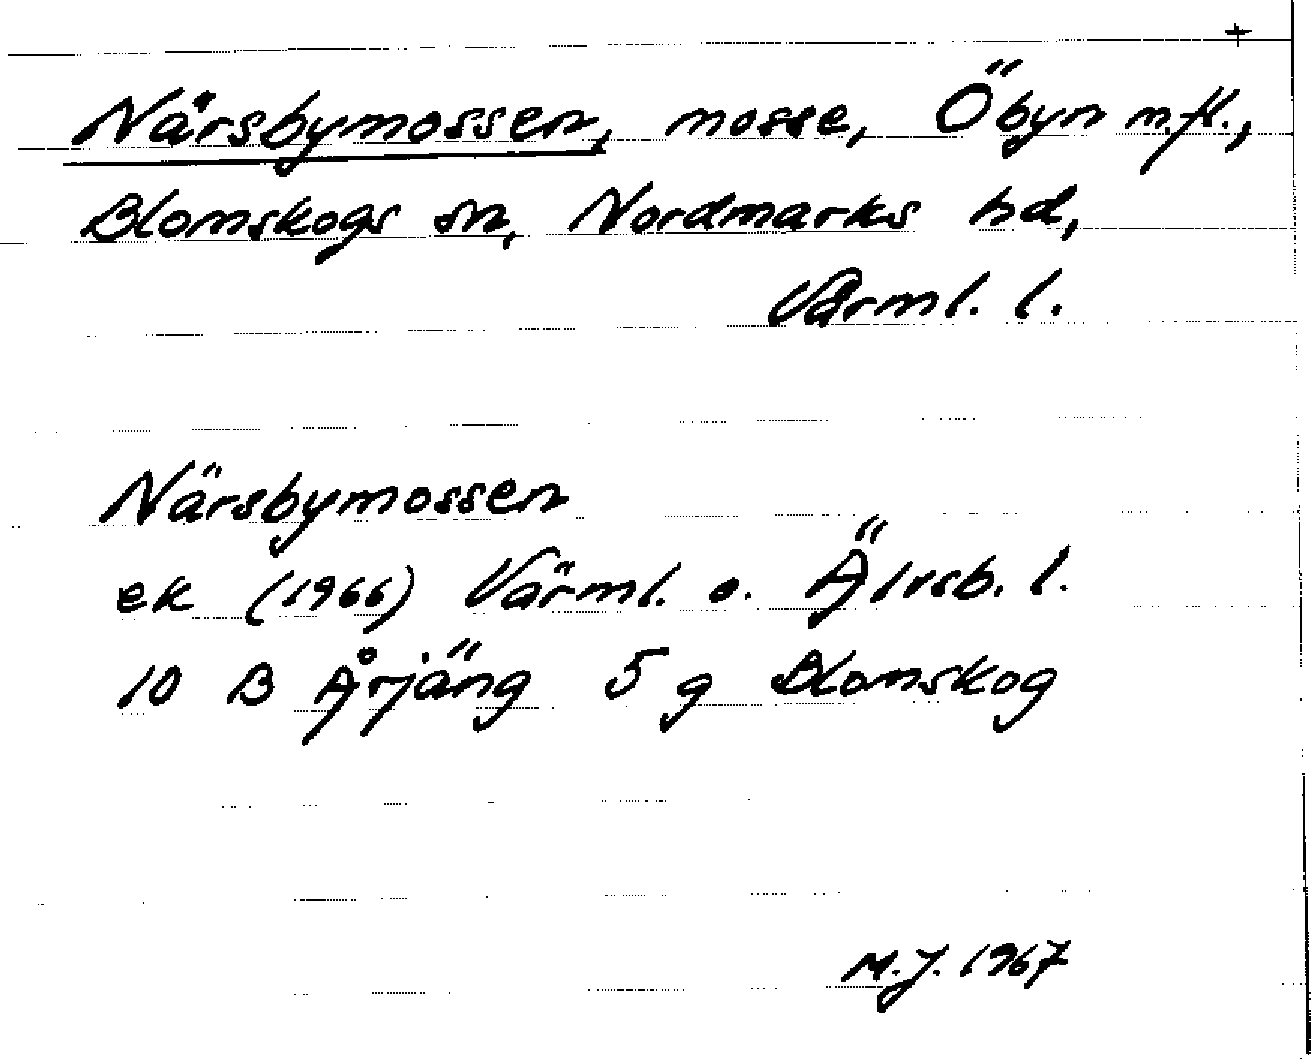 +
Närsbymossen, mosse, Öbyn m.fl.,
Blomskogs sn, Nordmarks hd,
Värml. l.
Närsbymossen
ek (1966) Värml. o. Älvsb. l.
10 B Årjäng 5 g Blomskog
M.J. 1967